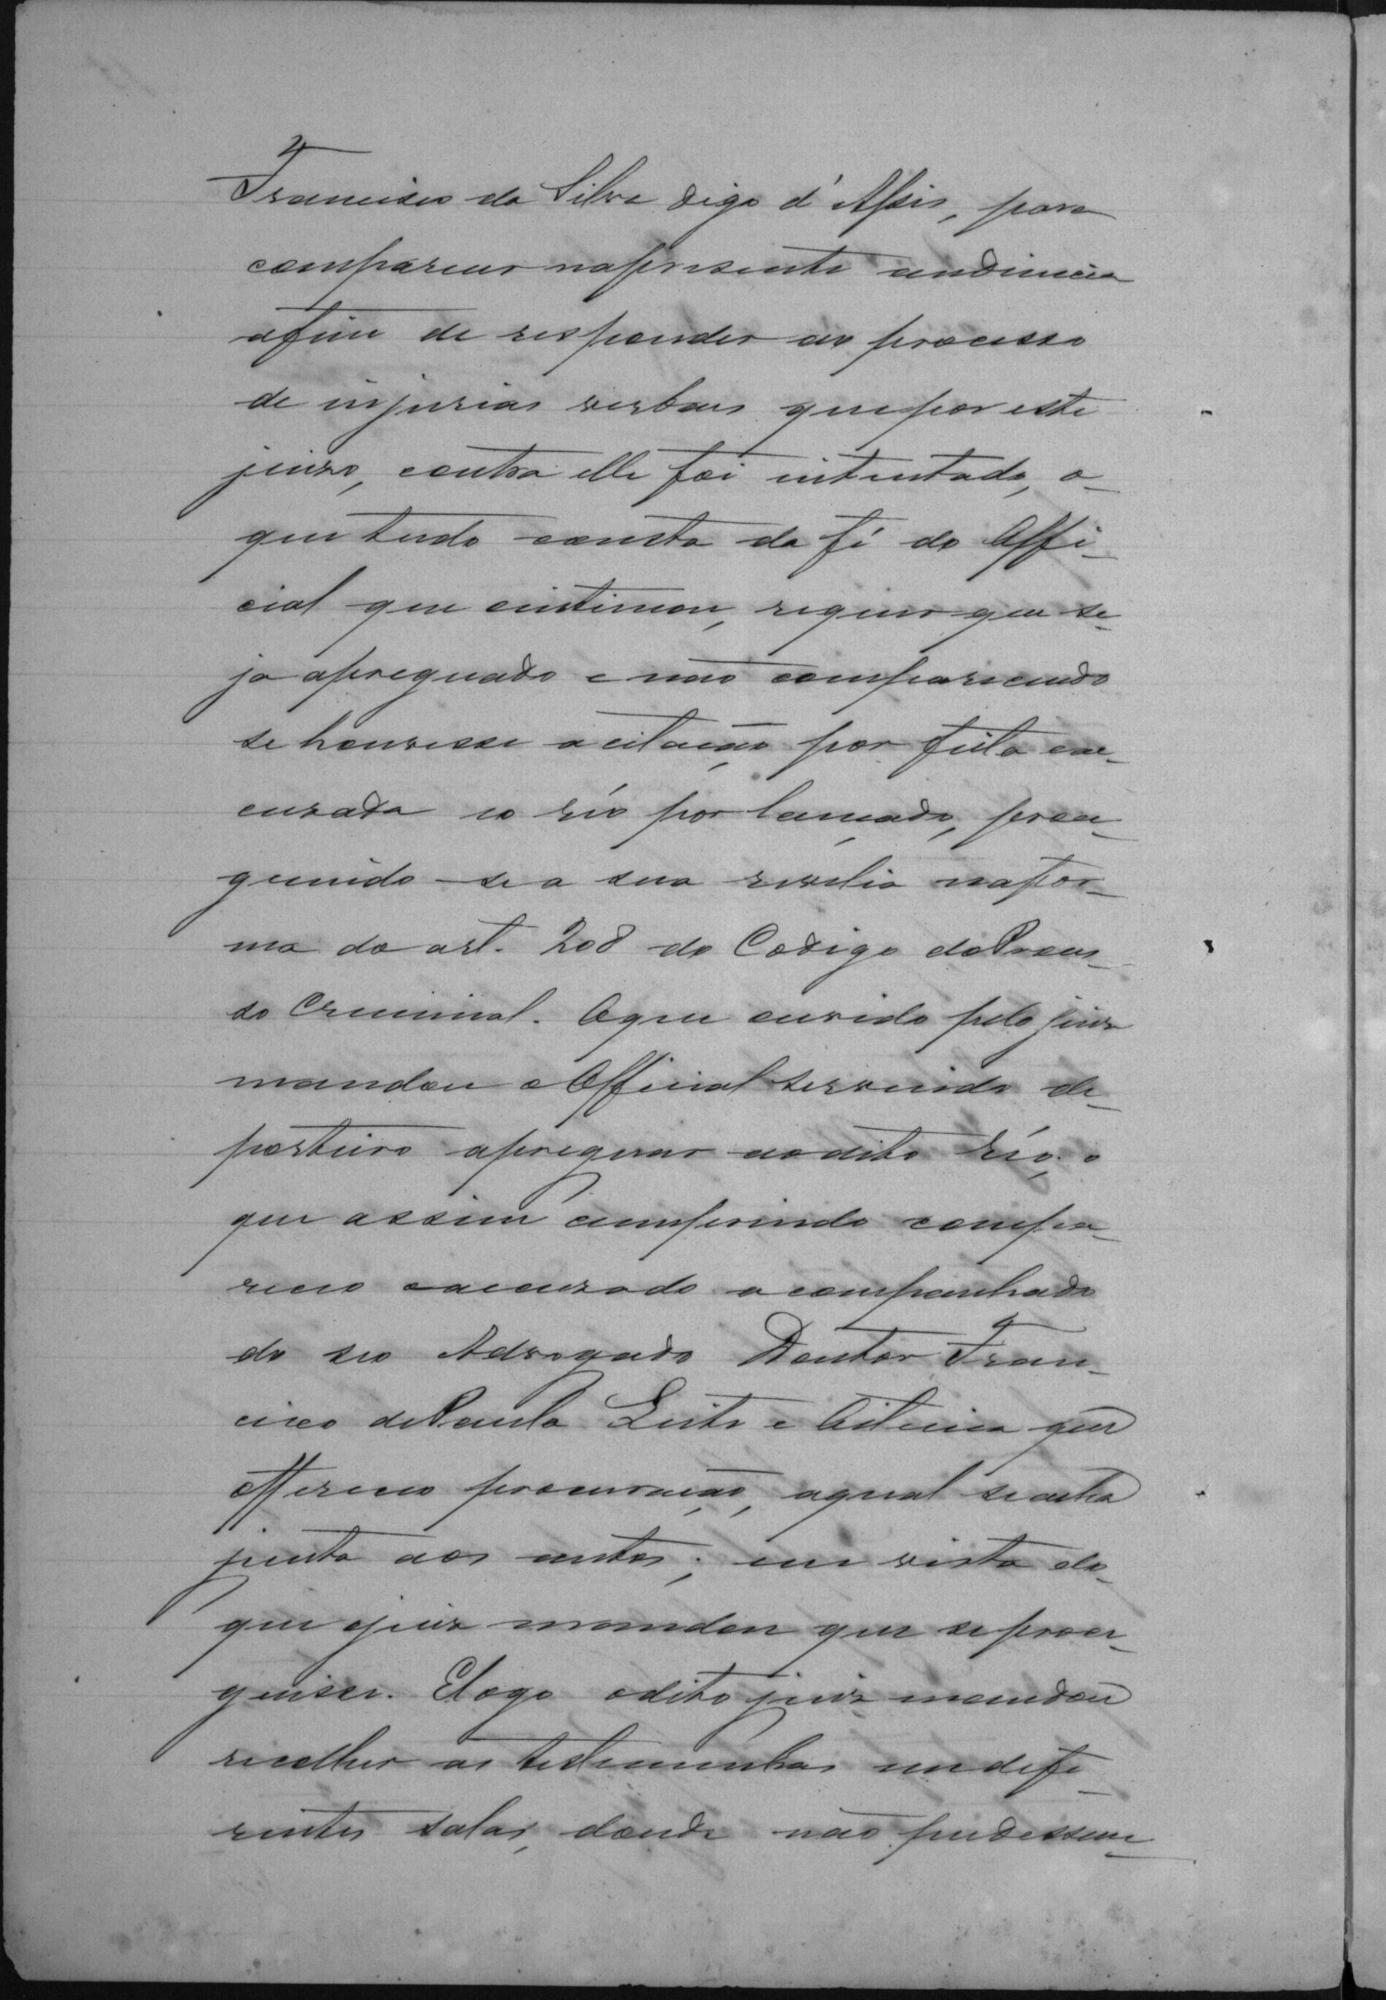 Francisco da Silva digo d'Assis, para
comparecer na presente audiencia
afim de responder ao processo
de injurias verbaes que por este
juizo, contra elle foi intentado, o-
que tudo consta da fé do Offi-
cial que o intimou, requer que se-
ja apregoado e não comparecendo
se houvesse a citação por feita e ac-
cuzada e o réo por lançado, prose-
guindo-se a sua revelia na for-
ma do art. 208 do Codigo do Proces-
so Criminal. Oque ouvido pelo juiz
mandou o Official servindo de-
porteiro apregoar ao dito réo; o
que assim cumprindo compa-
receo o accuzado acompanhado
do seo Advogado Doutor Fran-
cisco de Paula Leite e Oiticica que
offereceo procuração, aqual se acha
junta aos autos; em vista do-
que o juiz mandou que se prose-
guisse. E logo o dito juiz mandou
recolher as testemunhas em diffe-
rentes salas, donde não pudessem